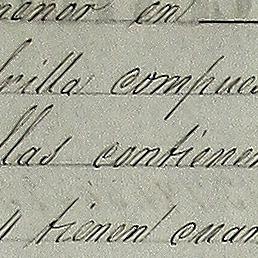 menor en
rilla compues
llas contienen
y tienen cuan